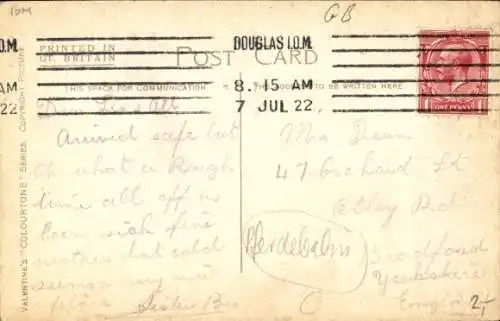 IOM
GB
PRINTED IN
GT. BRITAIN
POST CARD
DOUGLAS I.O.M.
8. 15 AM
7 JUL 22
O.M.
AM
22
THIS SPACE FOR COMMUNICATION
TO BE WRITTEN HERE
ONE PENNY
VALENTINE'S "COLOURTONE" SERIES. COPYRIGHT PICTURE
Dear & All
Arrived safe but
Oh what a Rough
time all off us
been sick fine
weather but cold
seems a very nice
place Sister & Bro
Mrs Dean
47 Orchard St
Otley Rd
Bradford
Yorkshire
England
Pferdebahn
2,-